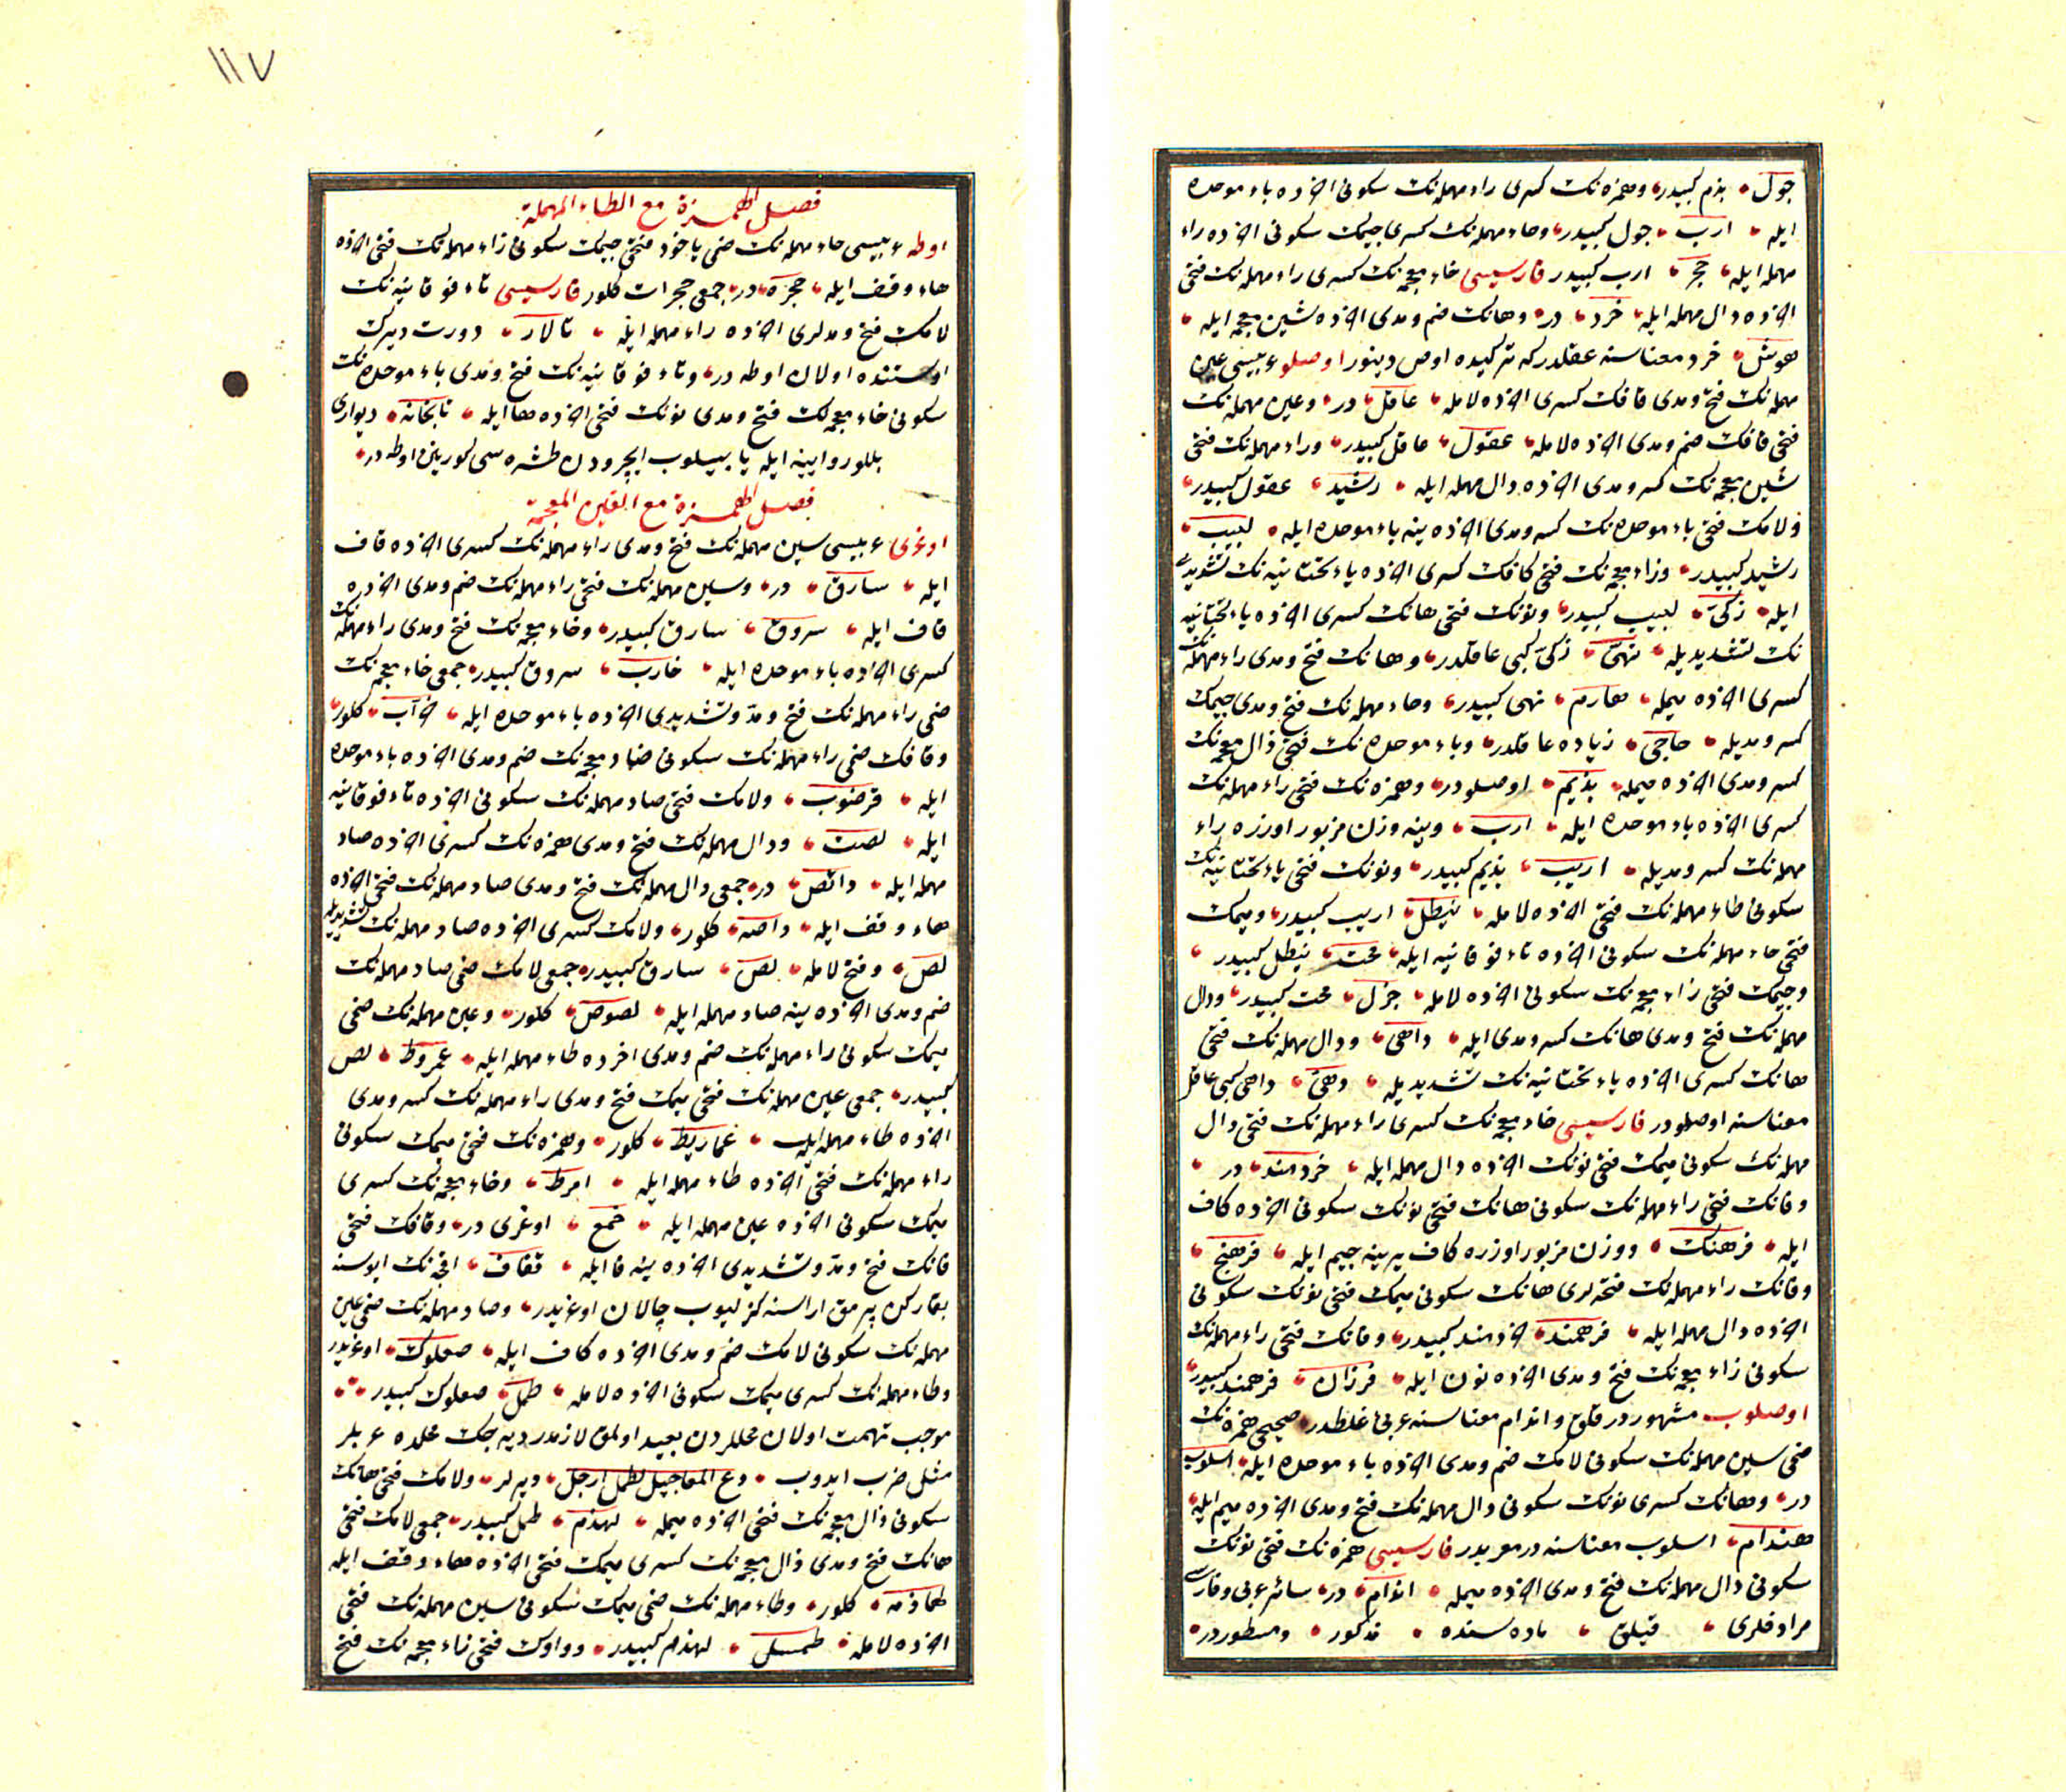 جول بذم كبيدر وهمزه نك كسرى راء مهمله نك سكونى اخرده باء موحده
ايله ارب جول كبيدر وحاء مهمله نك كسرى جيمك سكونى اخرده راء
مهمله ايله حجر ارب كبيدر فارسيسى خاء معجمه نك كسرى راء مهمله نك فتحى
اخرده دال مهمله ايله خرد در وهانك ضم ومدى اخرده شين معجمه ايله
هوش خرد معناسنه عقلدر كه تركيده اوص دينور اوصلو عربيسى عين
مهمله نك فتح ومدى قافك كسرى اخرده لامله عاقل در وعين مهمله نك
فتحى قافك ضم ومدى اخرده لامله عقول عاقل كبيدر وراء مهمله نك فتحى
شين معجمه نك كسر ومدى اخرده دال مهمله ايله رشيد عقول كبيدر
ولامك فتحى باء موحده نك كسر ومدى اخرده ينه باء موحده ايله لبيب
رشيد كبيدر وزاء معجمه نك فتحى كافك كسرى اخرده ياء تحتانيه نك تشديدى
ايله زكىّ لبيب كبيدر ونونك فتحى هانك كسرى اخرده ياء تحتانيه
نك تشديديله نهىّ زكىّ كبى عاقلدر وهانك فتح ومدى راء مهمله نك
كسرى اخرده ميمله هارم نهى كبيدر وحاء مهمله نك فتح ومدى جيمك
كسر ومديله حاجى زياده عاقلدر وباء موحده نك فتحى ذال معجمه نك
كسر ومدى اخرده ميمله بذيم اوصلودر وهمزه نك فتحى راء مهمله نك
كسرى اخرده باء موحده ايله ارب وينه وزن مزبور اوزره راء
مهمله نك كسر ومديله اريب بذيم كبيدر ونونك فتحى ياء تحتانيه نك
سكونى طاء مهمله نك فتحى اخرده لامله نيطل اريب كبيدر وميمك
فتحى حاء مهمله نك سكونى اخرده تاء فوقانيه ايله محت نيطل كبيدر
وجيمك فتحى زاء معجمه نك سكونى اخرده لامله جزل محت كبيدر ودال
مهمله نك فتح ومدى هانك كسر ومدى ايله داهى ودال مهمله نك فتحى
هانك كسرى اخرده ياء تحتانيه نك تشديديله دهىّ داهى كبى عاقل
معناسنه اوصلودر فارسيسى خاء معجمه نك كسرى راء مهمله نك فتحى دال
مهمله نك سكونى ميمك فتحى نونك اخرده دال مهمله ايله خردمند در
وفانك فتحى راء مهمله نك سكونى هانك فتحى نونك سكونى اخرده كاف
ايله فرهنك ووزن مزبور اوزره كاف يرينه جيم ايله فرهنج
وفانك راء مهمله نك فتحه لرى هانك سكونى ميمك فتحى نونك سكونى
اخرده دال مهمله ايله فرهمند خردمند كبيدر وفانك فتحى راء مهمله نك
سكونى زاء معجمه نك فتح ومدى اخرده نون ايله فرزان فرهمند كبيدر
اوصلوب مشهوردر قلق واندام معناسنه عربى غلطدر صحيحى همزه نك
ضمى سين مهمله نك سكونى لامك ضم ومدى اخرده باء موحده ايله اسلوب
در وهانك كسرى نونك سكونى دال مهمله نك فتح ومدى اخرده ميم ايله
هندام اسلوب معناسنه در معربدر فارسيسى همزه نك فتحى نونك
سكونى دال مهمله نك فتح ومدى اخرده ميمله اندام در سائر عربى وفارسى
مرادفلرى قيلق ماده سنده مذكور ومسطوردر
١١٧
فصل الهمزة مع الطاء المهملة
اوطه عربيسى حاء مهمله نك ضمى ياخود فتحى جيمك سكونى راء مهمله نك فتحى اخرده
هاء وقف ايله حجره در جمعى حجرات كلور فارسيسى تاء فوقانيه نك
لامك فتح ومدلرى اخرده راء مهمله ايله تالار دورت ديرك
اوستنده اولان اوطه در وتاء فوقانيه نك فتح ومدى باء موحده نك
سكونى خاء معجمه نك فتح ومدى نونك فتحى اخرده ها ايله تابخانه ديوارى
بللور وايينه ايله ياپيلوب ايچرودن طشره سى كورينن اوطه در
فصل الهمزة مع الغين المعجمة
اوغرى عربيسى سين مهمله نك فتح ومدى راء مهمله نك كسرى اخرده قاف
ايله سارق در وسين مهمله نك فتحى راء مهمله نك ضم ومدى اخرده
قاف ايله سروق سارق كبيدر وخاء معجمه نك فتح ومدى راء مهمله نك
كسرى اخرده باء موحده ايله خارب سروق كبيدر جمعى خاء معجمه نك
ضمى راء مهمله نك فتح ومدّ وتشديدى اخرده باء موحده ايله خرّاب كلور
وقافك ضمى راء مهمله نك سكونى ضاد معجمه نك ضم ومدى اخرده باء موحده
ايله قرضوب ولامك فتحى صاد مهمله نك سكونى اخرده تاء فوقانيه
ايله لصت ودال مهمله نك فتح ومدى همزه نك كسرى اخرده صاد
مهمله ايله دائص در جمعى دال مهمله نك فتح ومدى صاد مهمله نك فتحى اخرده
هاء وقف ايله داصه كلور ولامك كسرى اخرده صاد مهمله نك تشديديله
لصّ وفتح لامله لصّ سارق كبيدر جمعى لامك ضمى صاد مهمله نك
ضم ومدى اخرده ينه صاد مهمله ايله لصوص كلور وعين مهمله نك ضمى
ميمك سكونى راء مهمله نك ضم ومدى اخرده طاء مهمله ايله عمروط لص
كبيدر جمعى عين مهمله نك فتحى ميمك فتح ومدى راء مهمله نك كسر ومدى
اخرده طاء مهمله ايله عماريط كلور وهمزه نك فتحى ميمك سكونى
راء مهمله نك فتحى اخرده طاء مهمله ايله امرط وخاء معجمه نك كسرى
ميمك سكونى اخرده عين مهمله ايله خمع اوغرى در وقافك فتحى
فانك فتح ومدّ وتشديدى اخرده ينه فا ايله قفاف اقچه نك ايوسنه
بقاركن پرمق اراسنه كزليوب چالان اوغريدر وصاد مهمله نك ضمى عين
مهمله نك سكونى لامك ضم ومدى اخرده كاف ايله صعلوك اوغريدر
وطاء مهمله نك كسرى ميمك سكونى اخرده لامله طمل صعلوك كبيدر
موجب تهمت اولان محللردن بعيد اولمق لازمدر ديه جك محلده عربلر
مثل ضرب ايدوب دع المعاجيل لطمل ارجل ديرلر ولامك فتحى هانك
سكونى ذال معجمه نك فتحى اخرده ميمله لهذم طمل كبيدر جمعى لامك فتحى
هانك فتح ومدى ذال معجمه نك كسرى ميمك فتحى اخرده هاء وقف ايله
لهاذمه كلور وطاء مهمله نك ضمى ميمك سكونى سين مهمله نك فتحى
اخرده لامله طمسل لهذم كبيدر وواوك فتحى زاء معجمه نك فتح